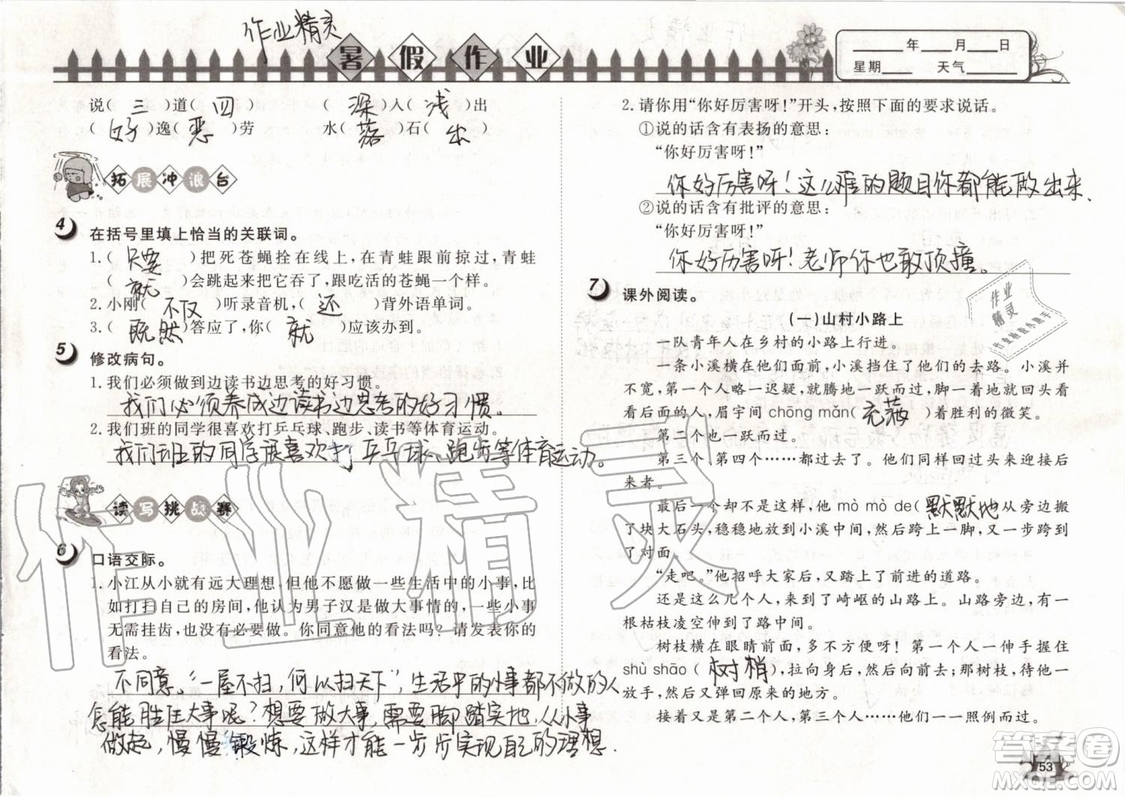 作业精灵
暑假作业
____年____月____日
星期____ 天气____
说( 三 )道( 四 ) ( 深 )人( 浅 )出
( 好 )逸( 恶 )劳 水( 落 )石( 出 )
拓展冲浪台
4 在括号里填上恰当的关联词。
1.( 只要 )把死苍蝇拴在线上,在青蛙眼前掠过,青蛙
( 就 )会跳起来把它吞了,跟吃活的苍蝇一个样。
2.小刚( 不仅 )听录音机,( 还 )背外语单词。
3.( 既然 )答应了,你( 就 )应该办到。
5 修改病句。
1.我们必须做到边读书边思考的好习惯。
我们必须养成边读书边思考的好习惯。
2.我们班的同学很喜欢打乒乓球、跑步、读书等体育运动。
我们班的同学很喜欢打乒乓球、跑步等体育运动。
读写挑战赛
6 口语交际。
1.小江从小就有远大理想。但他不愿做一些生活中的小事,比
如打扫自己的房间,他认为男子汉是做大事情的,一些小事
无需挂齿,也没有必要做。你同意他的看法吗?请发表你的
看法。
不同意。“一屋不扫,何以扫天下”,生活中的小事都不做的人
怎能胜任大事呢?想要做大事,需要脚踏实地,从小事
做起,慢慢锻炼,这样才能一步步实现自己的理想.
2.请你用“你好厉害呀!”开头,按照下面的要求说话。
①说的话含有表扬的意思:
“你好厉害呀!”
你好厉害呀!这么难的题目你都能做出来.
②说的话含有批评的意思:
“你好厉害呀!”
你好厉害呀!老师你也敢顶撞。
7 课外阅读。
(一)山村小路上
一队青年人在乡村的小路上行进。
一条小溪横在他们面前,小溪挡住了他们的去路。小溪并
不宽,第一个人一跃,就腾地一下跃过,脚一着地就回头看
看后面的人,眉宇间 chōng mǎn( 充满 )着胜利的微笑。
第二个也一跃而过。
第三个、第四个……都过去了。他们同样回过头来迎接后
来者。
最后一个却不是这样,他 mò mò de( 默默地 )从旁边搬
了块大石头,稳稳地放到小溪中间,然后一步跨上,又一步跨到
了对面。
“走吧。”他招呼大家后,又踏上了前进的道路。
还是这么几个人,来到了崎岖的山路上。山路旁边,有一
根枯枝凌空伸到了路中间。
树枝横住了他们的眼睛。第一个人一伸手握住
shù shāo( 树梢 ),拉向身后,然后向前去;那树枝,待他
一放手,然后又弹回原来的地方。
接着又是第二个人、第三个人……一一照例而过。
作业精灵
作业精灵
答案圈
MXQE.COM
53